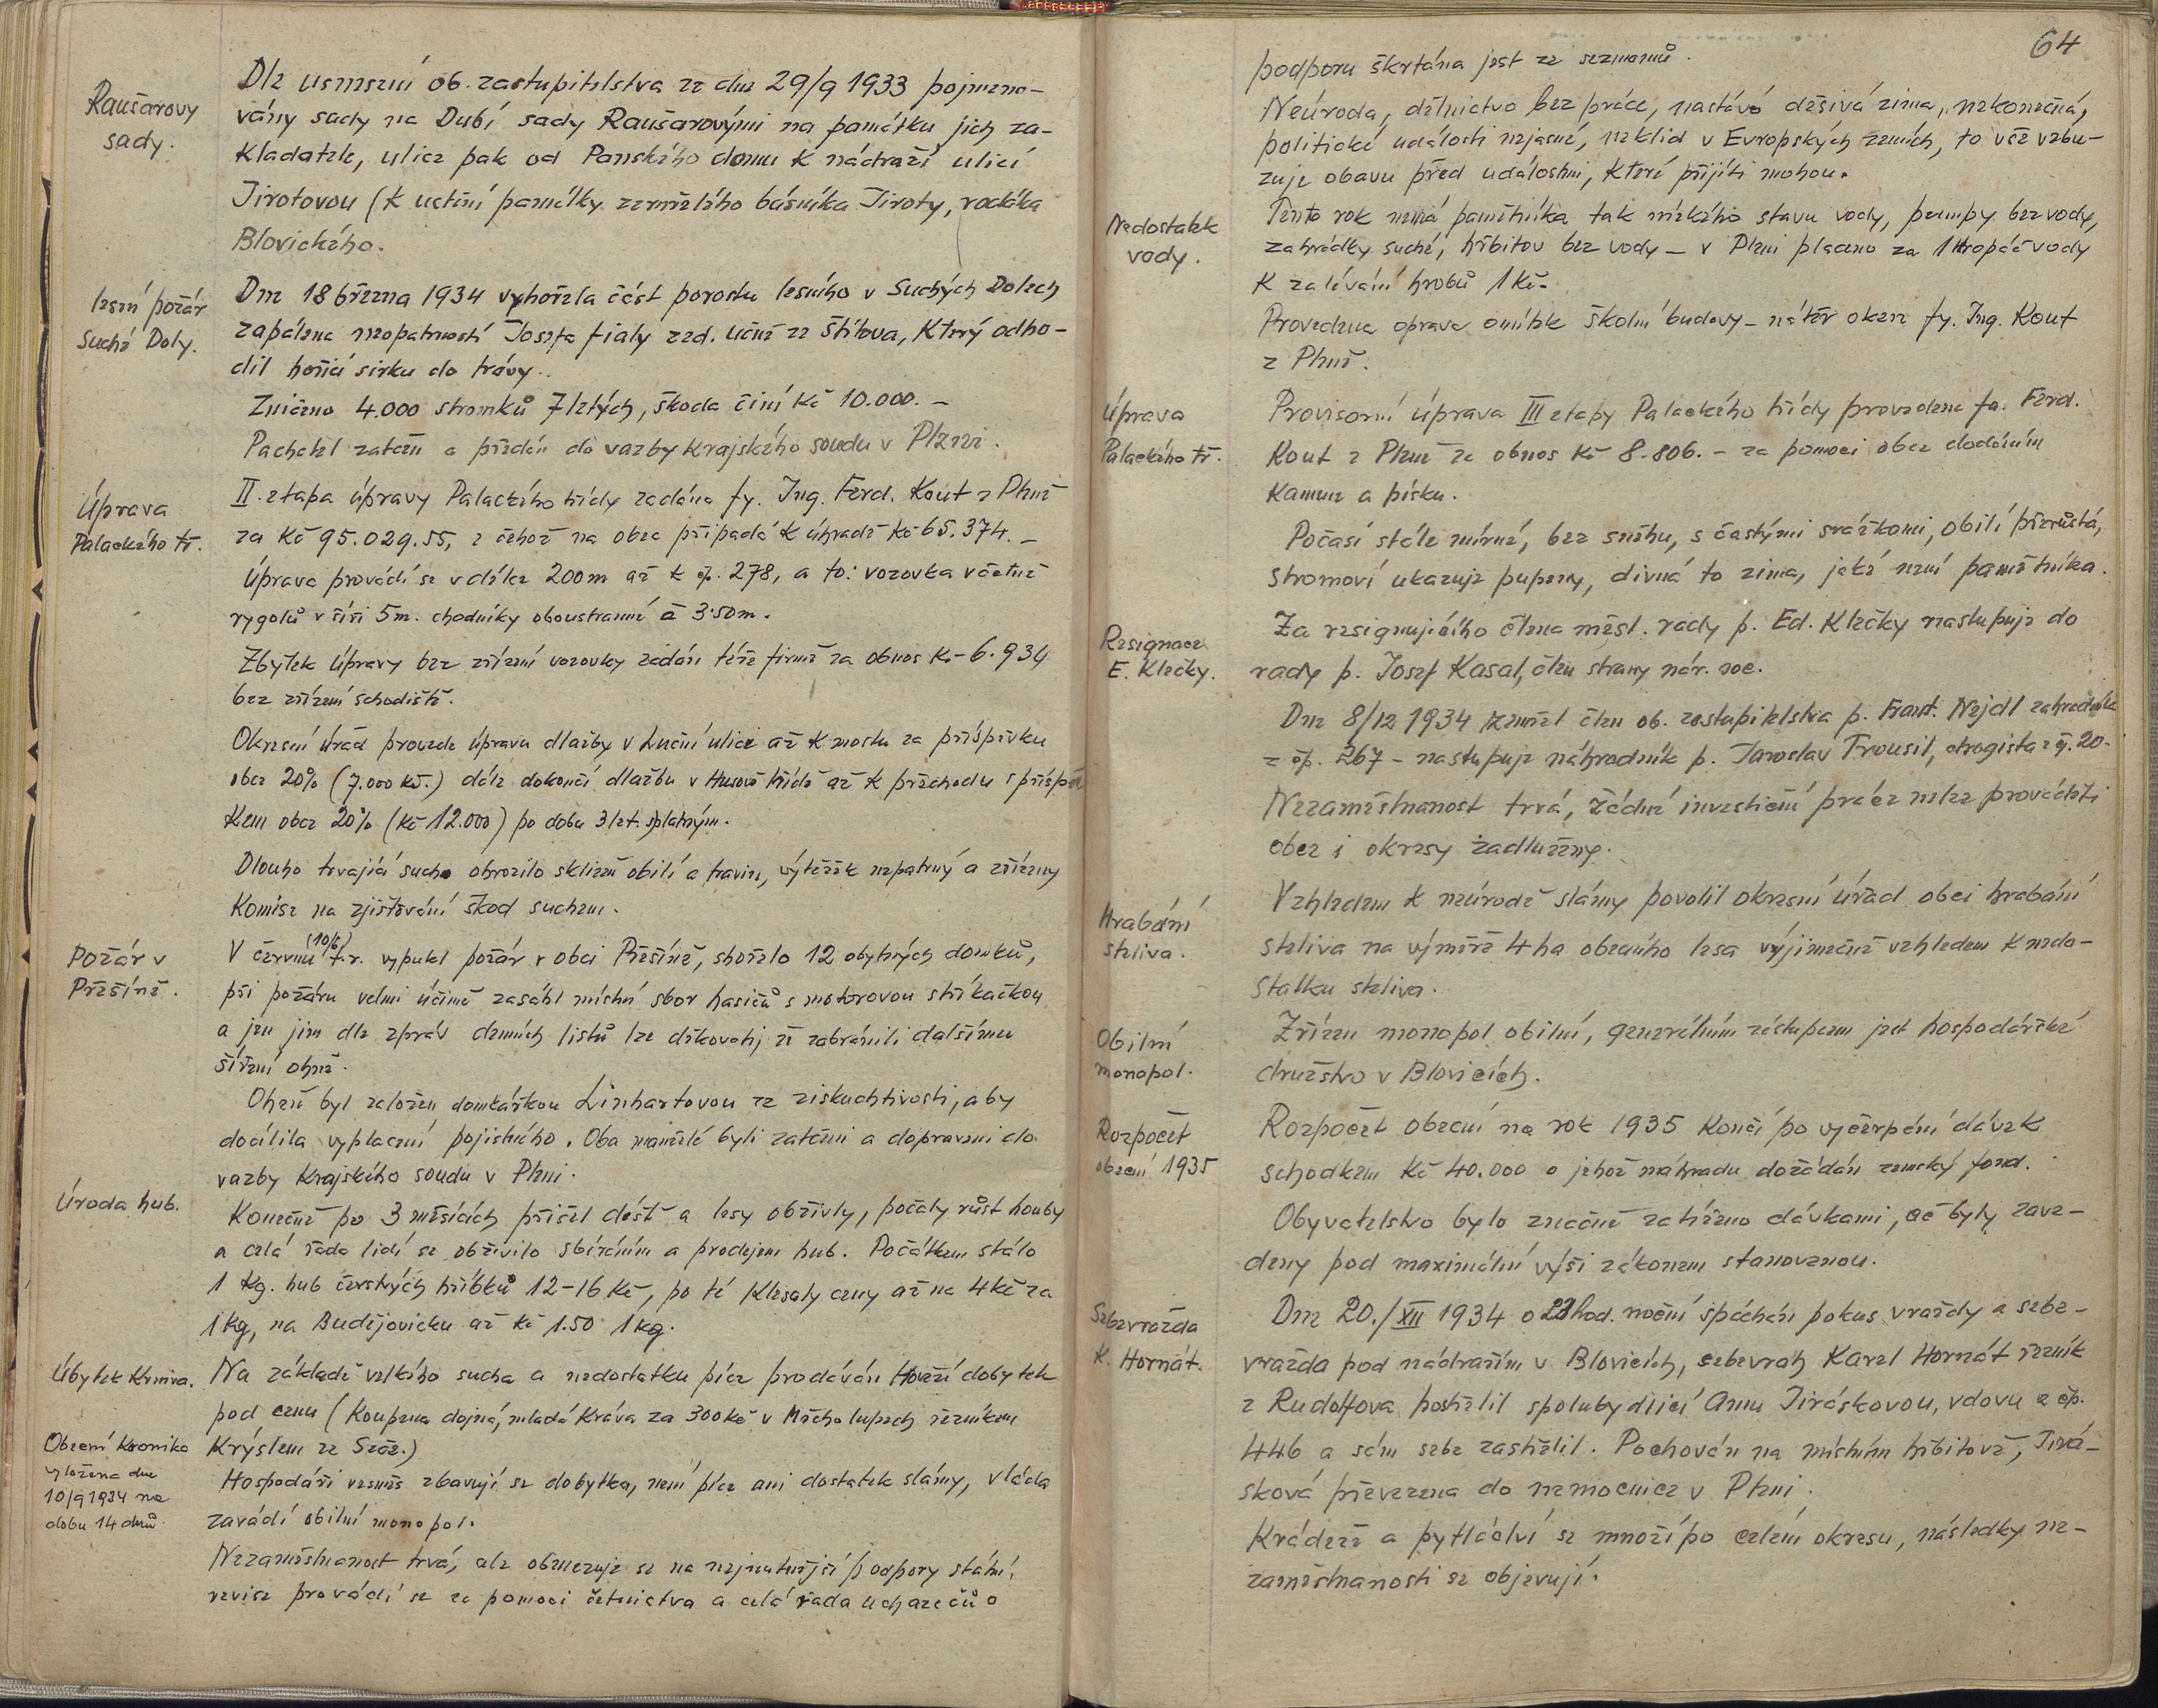 Raušarovy
sady.
Dle usnesení ob. zastupitelstva ze dne 29/9 1933 pojmeno-
vány sady na Dubí sady Raušarovými na památku jich za-
kladatele, ulice pak od Panského domu k nádraží ulicí
Jirotovou (k uctění památky zemřelého básníka Jiroty, rodáka
Blovického.
lesní požár
Suché Doly.
Dne 18 března 1934 vyhořela část porostu lesního v Suchých Dolech
zapálena neopatrností Josefa fialy zed. učně ze Štítova, který odho-
dil hořící sirku do trávy.
Zničeno 4.000 stromků 7letých, škoda činí Kč 10.000.-
Pachatel zatčen a předán do vazby Krajského soudu v Plzni.
Úprava
Palackého tř.
II. etapa úpravy Palackého třídy zadána fy. Ing. Ferd. Kout z Plzně
za Kč 95.029.55, z čehož na obec připadá k úhradě Kč 65.374.-
Úprava provádí se v délce 200m až k čp. 278, a to: vozovka včetně
rygolů v šíři 5m. chodníky oboustranné á 3.50m.
Zbytek úpravy bez zřízení vozovky zadán téže firmě za obnos Kč 6.934
bez zřízení schodiště.
Okresní úřad provede úpravu dlažby v Luční ulici až k mostu za příspěvku
obce 20% (7.000 Kč.) dále dokončí dlažbu v Husově třídě až k přechodu s příspěv
kem obce 20% (Kč 12.000) po dobu 3 let. splatným.
Dlouho trvající sucho ohrozilo sklizeň obilí a travin, výtěžek nepatrný a zřízeny
Komise na zjišťování škod suchem.
Požár v
Přešíně.
V červnu (10/6) t.r. vypukl požár v obci Přešíně, shořelo 12 obytných domků,
při požáru velmi účinně zasáhl místní sbor hasičů s motorovou stříkačkou
a jen jim dle zpráv denních listů lze děkovati, že zabránili dalšímu
šíření ohně.
Oheň byl založen domkářkou Linhartovou ze ziskuchtivosti, aby
docílila vyplacení pojistného. Oba manželé byli zatčeni a dopraveni do
vazby Krajského soudu v Plzni.
Úroda hub.
Konečně po 3 měsících přišel déšť a lesy obživly, počaly růst houby
a celá řada lidí se obživilo sbíráním a prodejem hub. Počátkem stálo
1 Kg. hub čerstvých hříbků 12-16 Kč, po té klesaly ceny až na 4 Kč za
1 kg, na Budějovicku až Kč 1.50 1 kg.
Úbytek Krmiva.
Na základě velkého sucha a nedostatku píce prodáván Hovězí dobytek
pod cenu (Koupena dojná, mladá kráva za 300 Kč v Měcholupech řezníkem
Krýslem ze Seče.)
Obecní kronika
vyložena dne
10/9 1934 na
dobu 14 dnů.
Hospodáři vesměs zbavují se dobytka, není píce ani dostatek slámy, vláda
zavádí obilní monopol.
Nezaměstnanost trvá, ale obmezuje se na nejnutnější podpory státní,
revise provádí se za pomoci četnictva a celá řada uchazečů o
64
podporu škrtána jest ze seznamů.
Neúroda, dělnictvo bez práce, nastává děsivá zima, nekonečná,
politické události nejasné, neklid v Evropských zemích, to vše vzbu-
zuje obavu před událostmi, které přijíti mohou.
Nedostatek
vody.
Tento rok nemá pamětníka tak nízkého stavu vody, pumpy bez vody,
zahrádky suché, hřbitov bez vody - v Plzni placeno za 1 Kropáč vody
k zalévání hrobů 1 Kč.
Provedena oprava omítek školní budovy - nátěr oken fy. Ing. Kout
z Plzně.
Úprava
Palackého tř.
Provisorní úprava III etapy Palackého třídy provedena fa. Ferd.
Kout z Plzně za obnos Kč 8.806.- za pomoci obce dodáním
Kamene a písku.
Počasí stále mírné, bez sněhu, s častými srážkami, obilí přerůstá,
stromoví ukazuje pupeny, divná to zima, jaké není pamětníka.
Resignace
E. Klečky.
Za resignujícího člena měst. rady p. Ed. Klečky nastupuje do
rady p. Josef Kasal, člen strany nár. soc.
Dne 8/12 1934 zemřel člen ob. zastupitelstva p. Frant. Nejdl zahradník
z čp. 267 - nastupuje náhradník p. Jaroslav Trousil, drogista z čp. 20.
Nezaměstnanost trvá, žádné investiční práce nelze prováděti
obce i okresy zadluženy.
Hrabání
steliva.
Vzhledem k neúrodě slámy povolil okresní úřad obci hrabání
steliva na výměře 4 ha obecního lesa výjimečně vzhledem k nedo-
statku steliva.
Obilní
monopol.
Zřízen monopol obilní, generálním zástupcem jest hospodářské
družstvo v Blovicích.
Rozpočet
obecní 1935
Rozpočet obecní na rok 1935 končí po vyčerpání dávek
schodkem Kč 40.000 o jehož náhradu dožádán zemský fond.
Obyvatelstvo bylo značně zatíženo dávkami, ač byly zave-
deny pod maximální výši zákonem stanovenou.
Sebevražda
K. Hornát.
Dne 20./XII 1934 o 23 hod. noční spáchán pokus vraždy a sebe-
vražda pod nádražím v Blovicích, sebevrah Karel Hornát řezník
z Rudolfova postřelil spolubydlící Annu Jiráskovou, vdovu z čp.
446 a sám sebe zastřelil. Pochován na místním hřbitově, Jirá-
sková převezena do nemocnice v Plzni.
Krádeže a pytláctví se množí po celém okresu, následky ne-
zaměstnanosti se objevují.